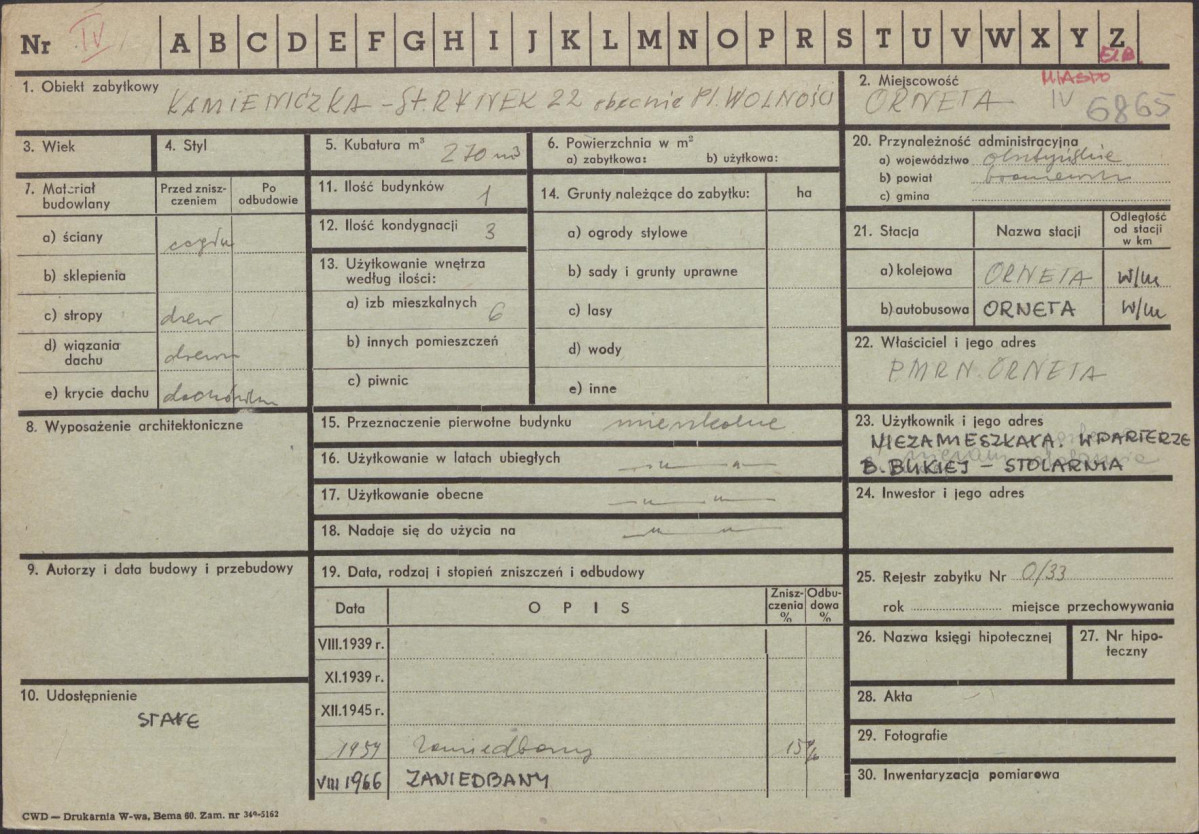 Nr IV A B C D E F G H I J K L M N O P R S T U V W X Y Z
ELB
1. Obiekt zabytkowy KAMIENICZKA – ST. RYNEK 22 obecnie Pl. WOLNOŚCI
2. Miejscowość MIASTO
ORNETA IV 6865
3. Wiek
4. Styl
5. Kubatura m³ 270 m3
6. Powierzchnia w m²
a) zabytkowa: b) użytkowa:
20. Przynależność administracyjna
a) województwo olsztyńskie
b) powiat braniewski
c) gmina
7. Materiał budowlany
Przed zniszczeniem
Po odbudowie
a) ściany cegła
b) sklepienia
c) stropy drew
d) wiązania dachu drewn
e) krycie dachu dachówka
11. Ilość budynków 1
12. Ilość kondygnacji 3
13. Użytkowanie wnętrza według ilości:
a) izb mieszkalnych 6
b) innych pomieszczeń
c) piwnic
14. Grunty należące do zabytku: ha
a) ogrody stylowe
b) sady i grunty uprawne
c) lasy
d) wody
e) inne
21. Stacja
Nazwa stacji
Odległość od stacji w km
a) kolejowa ORNETA w/m
b) autobusowa ORNETA w/m
22. Właściciel i jego adres
PMRN ORNETA
8. Wyposażenie architektoniczne
15. Przeznaczenie pierwotne budynku mieszkalne
16. Użytkowanie w latach ubiegłych — „ — „ —
17. Użytkowanie obecne — „ — „ —
18. Nadaje się do użycia na — „ — „ —
23. Użytkownik i jego adres
NIEZAMIESZKAŁA. W PARTERZE
B. BUKIEJ – STOLARNIA
24. Inwestor i jego adres
9. Autorzy i data budowy i przebudowy
19. Data, rodzaj i stopień zniszczeń i odbudowy
Data
O P I S
Zniszczenia %
Odbudowa %
VIII.1939 r.
XI.1939 r.
XII.1945 r.
1959 Zaniedbany 15%
VIII 1966 ZANIEDBANY
25. Rejestr zabytku Nr 0/33
rok miejsce przechowywania
26. Nazwa księgi hipotecznej
27. Nr hipoteczny
10. Udostępnienie
STAŁE
28. Akta
29. Fotografie
30. Inwentaryzacja pomiarowa
CWD — Drukarnia W-wa, Bema 60. Zam. nr 349-5162